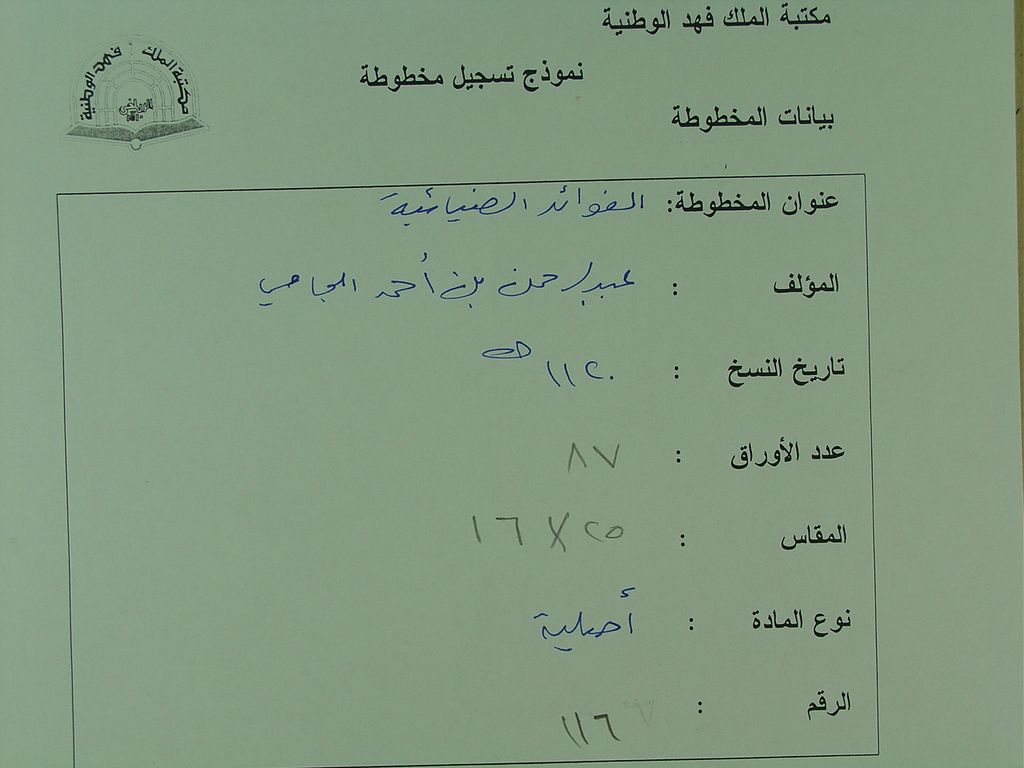 مكتبة الملك فهد الوطنية
نموذج تسجيل مخطوطة
مكتبة الملك فهد الوطنية
الرياض
بيانات المخطوطة
عنوان المخطوطة: الفوائد الضيائية
المؤلف : عبدالرحمن بن أحمد الجامي
تاريخ النسخ : ١١٢٠ هـ
عدد الأوراق : ٨٧
المقاس : ٢٥ X ١٦
نوع المادة : أصلية
الرقم : ١١٦